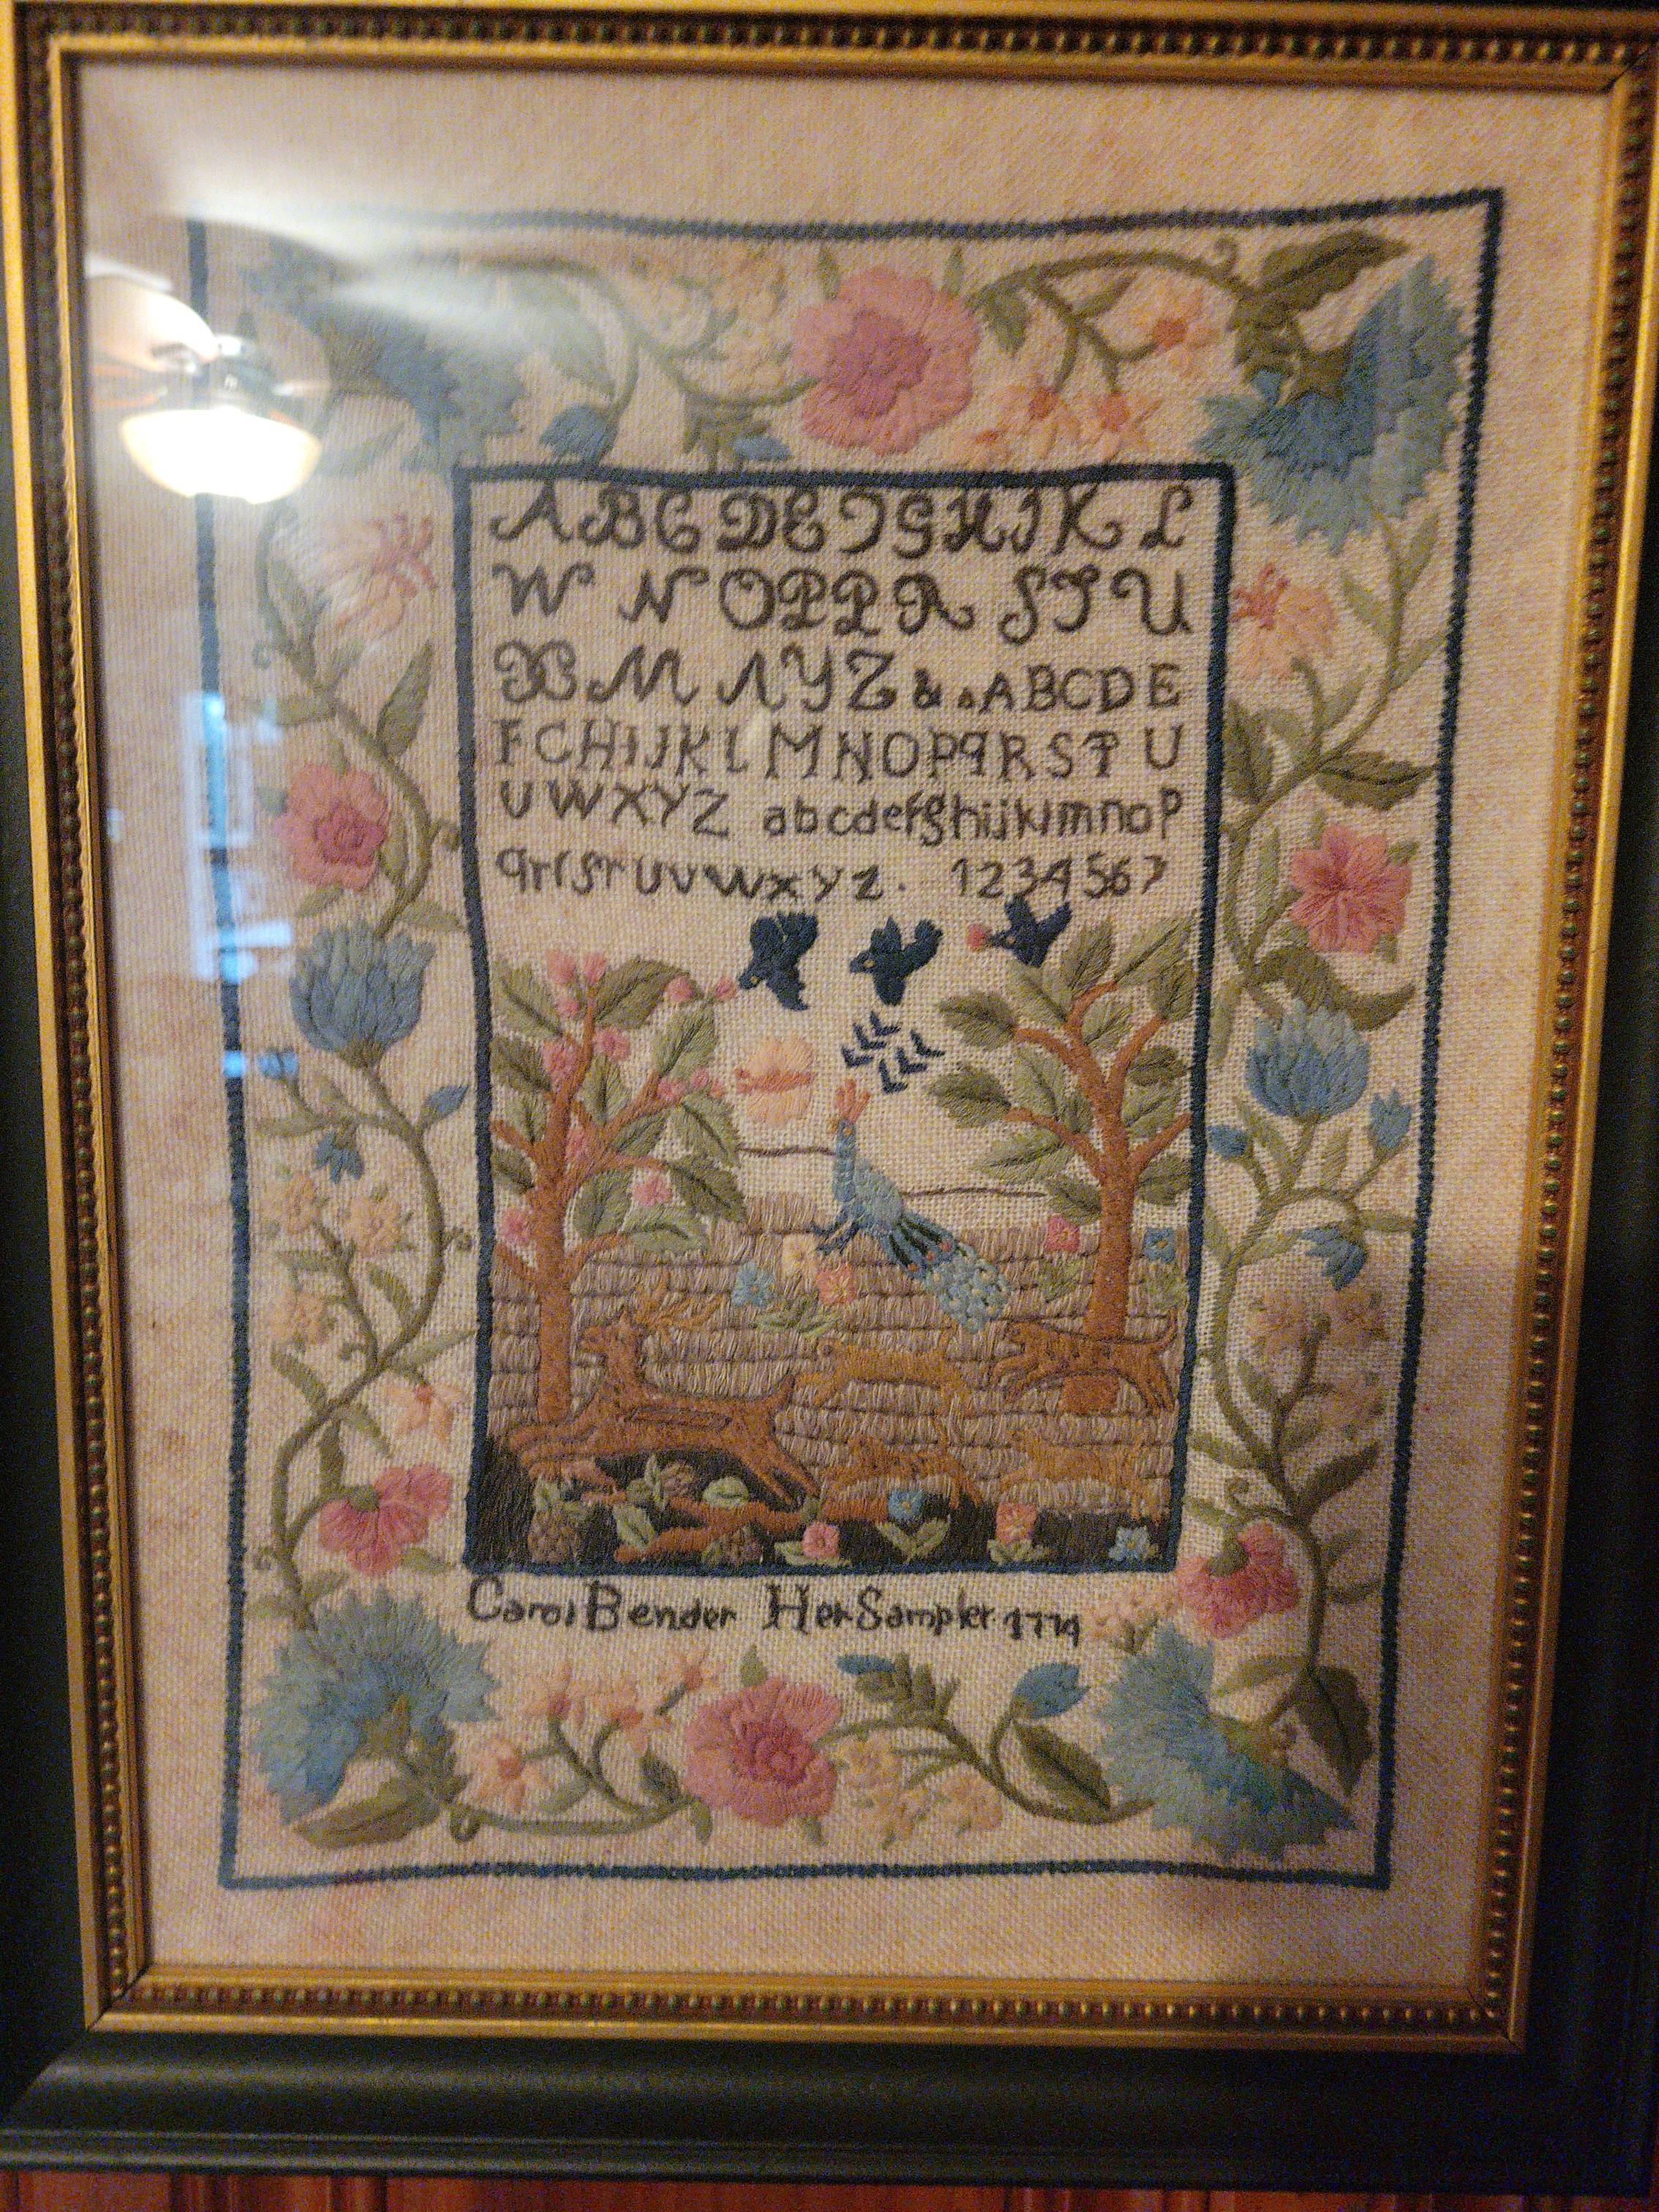 A B C D E F G H I K L
W N O P P R S T U
X B M A Y Z & . A B C D E
F C H I J K L M N O P q R S T U
U W X Y Z a b c d e f g h i j k l m n o p
q r ſ s t u v w x y z . 1 2 3 4 5 6 7
Carol Bender Her Sampler 1774